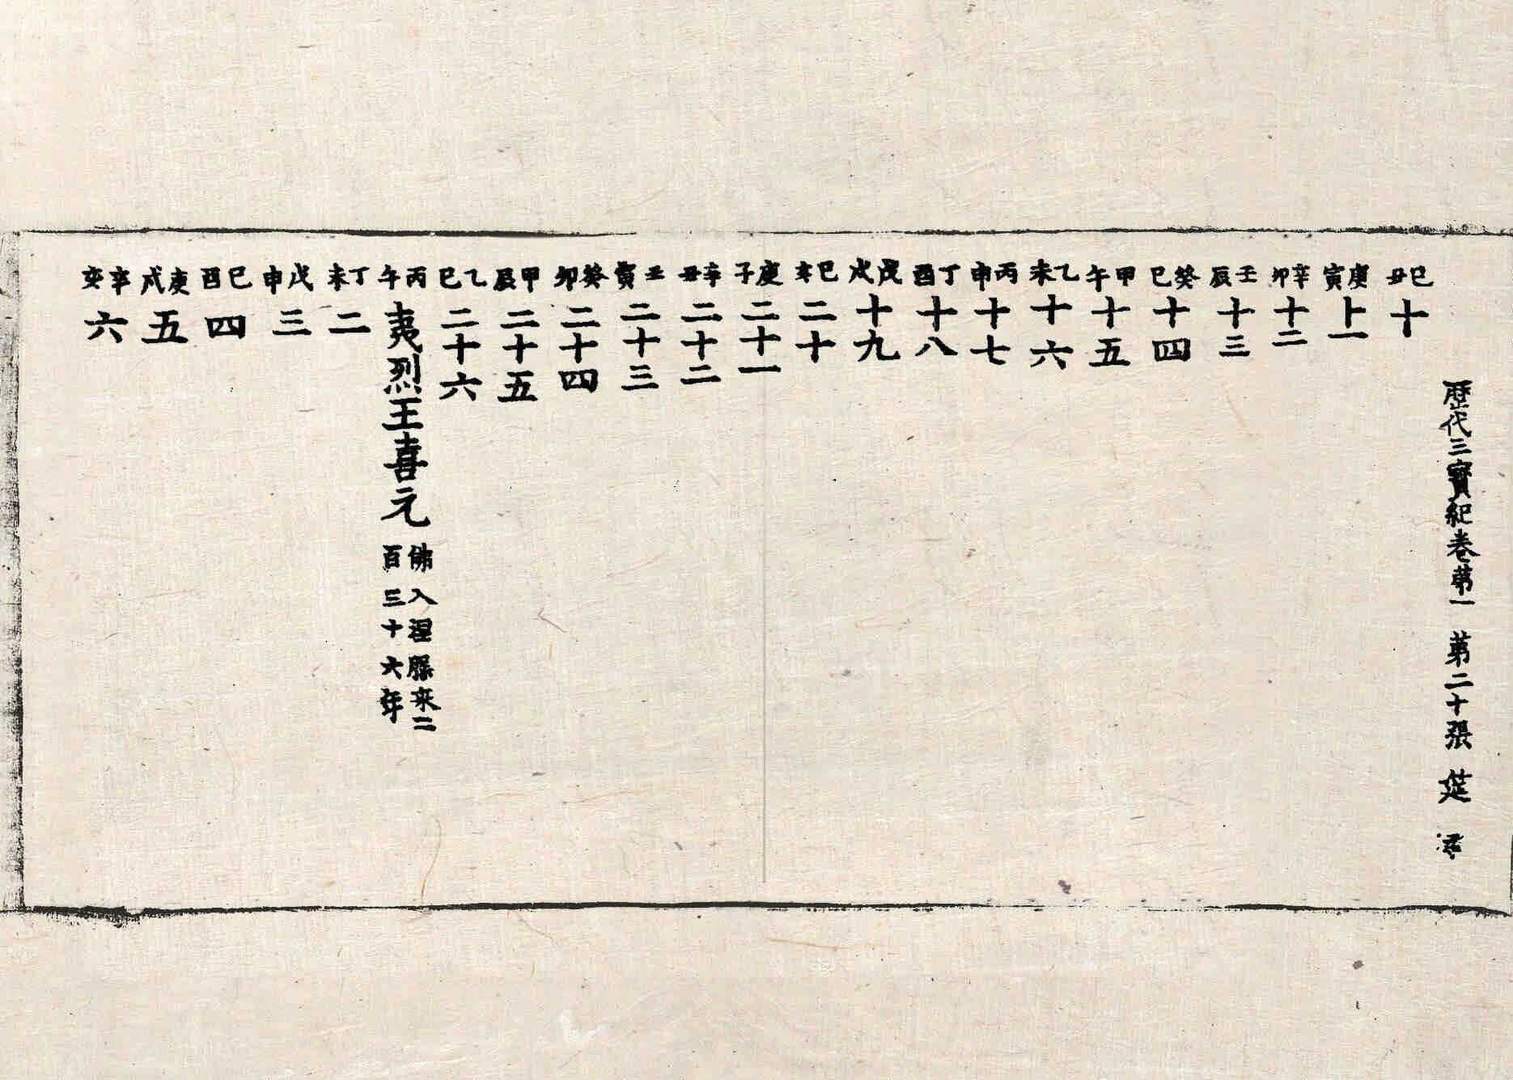 歷代三寶紀卷第一　第二十張　筵
己丑十
庚寅十一
辛卯十二
壬辰十三
癸巳十四
甲午十五
乙未十六
丙申十七
丁酉十八
戊戌十九
己亥二十
庚子二十一
辛丑二十二
壬寅二十三
癸卯二十四
甲辰二十五
乙巳二十六
丙午夷烈王喜元　佛入涅槃来二百三十六年
丁未二
戊申三
己酉四
庚戌五
辛亥六